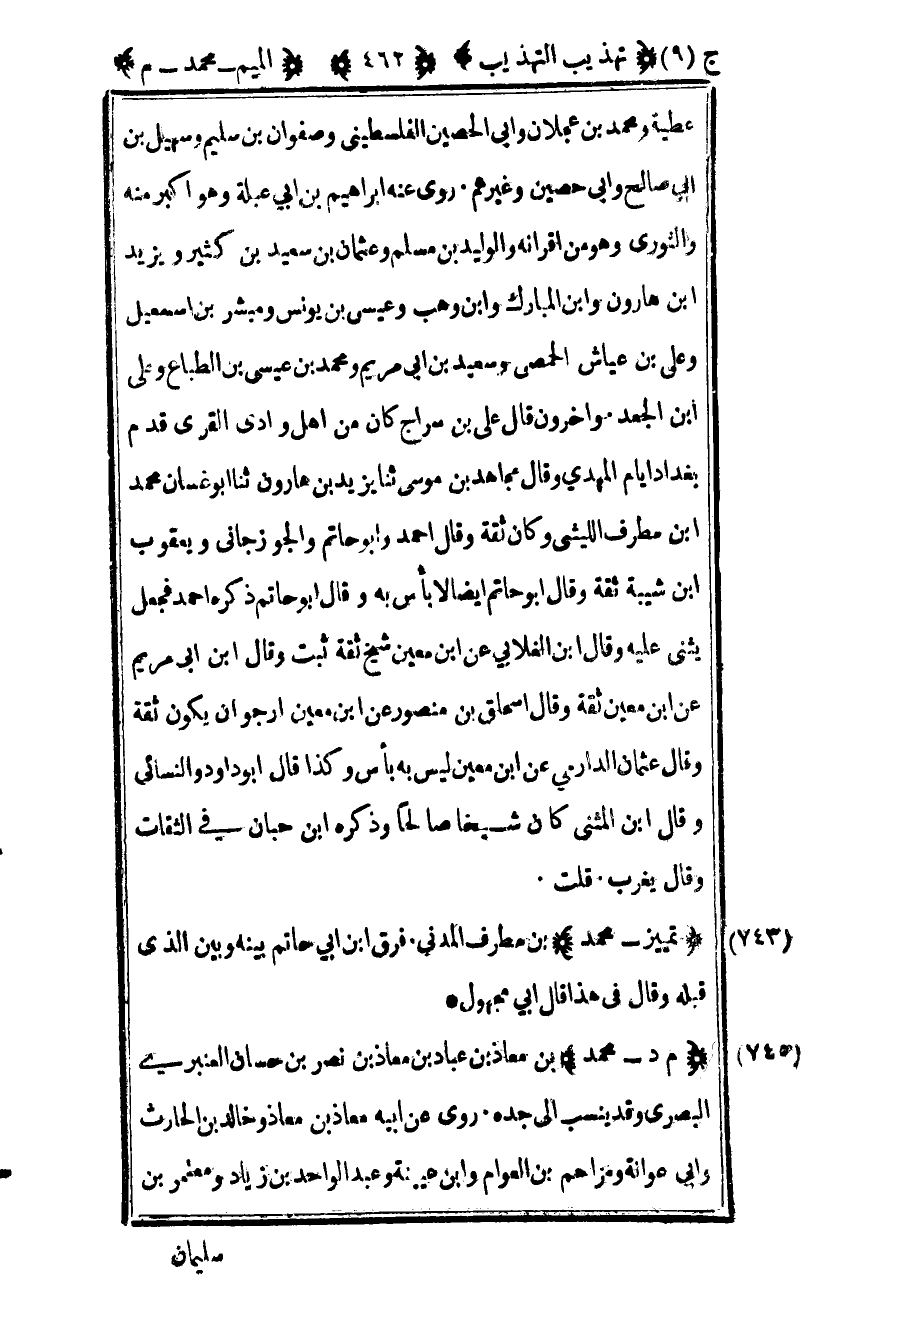 ج (٩) ﴿ تهذيب التهذيب ﴾ ﴿ ٤٦٢ ﴾ ﴿ الميم ـ محمد ـ م ﴾
عطية ومحمد بن عجلان وابى الحصين الفلسطينى وصفوان بن سليم وسهيل بن
ابي صالح وابى حصين وغيرهم . روى عنه ابراهيم بن ابي عبلة وهو اكبر منه
والثورى وهو من اقرانه والوليد بن مسلم وعثمان بن سعيد بن كثير و يزيد
ابن هارون وابن المبارك وابن وهب وعيسى بن يونس ومبشر بن اسمعيل
وعلى بن عياش الحمصى وسعيد بن ابي مريم ومحمد بن عيسى بن الطباع وعلى
ابن الجعد . واخرون قال على بن سراج كان من اهل و ادى القرى قدم
بغداد ايام المهدي وقال مجاهد بن موسى ثنا يزيد بن هارون ثنا ابو غسان محمد
ابن مطرف الليثى وكان ثقة وقال احمد وابو حاتم والجو زجانى و يعقوب
ابن شيبة ثقة وقال ابو حاتم ايضا لا بأس به و قال ابو حاتم ذكره احمد فجعل
يثنى عليه وقال ابن الغلابي عن ابن معين شيخ ثقة ثبت وقال ابن ابى مريم
عن ابن معين ثقة وقال اسحاق بن منصور عن ابن معين ارجو ان يكون ثقة
وقال عثمان الدارمي عن ابن معين ليس به بأس وكذا قال ابو داود والنسائي
و قال ابن المثنى كان شيخا صالحا وذكره ابن حبان في الثقات
وقال يغرب . قلت .
(٧٤٣) ﴿ تمييز ـ محمد ﴾ بن مطرف المدني . فرق ابن ابي حاتم بينه وبين الذى
قبله وقال فى هذا قال ابي مجهول ●
(٧٤٥) ﴿ م د ـ محمد ﴾ بن معاذ بن عباد بن معاذ بن نصر بن حسان العنبري
البصرى وقد ينسب الى جده . روى عن ابيه معاذ بن معاذ وخالد بن الحارث
وابي عوانة ومزاحم بن العوام وابن عيينة وعبد الواحد بن زياد ومعتمر بن
سليمان